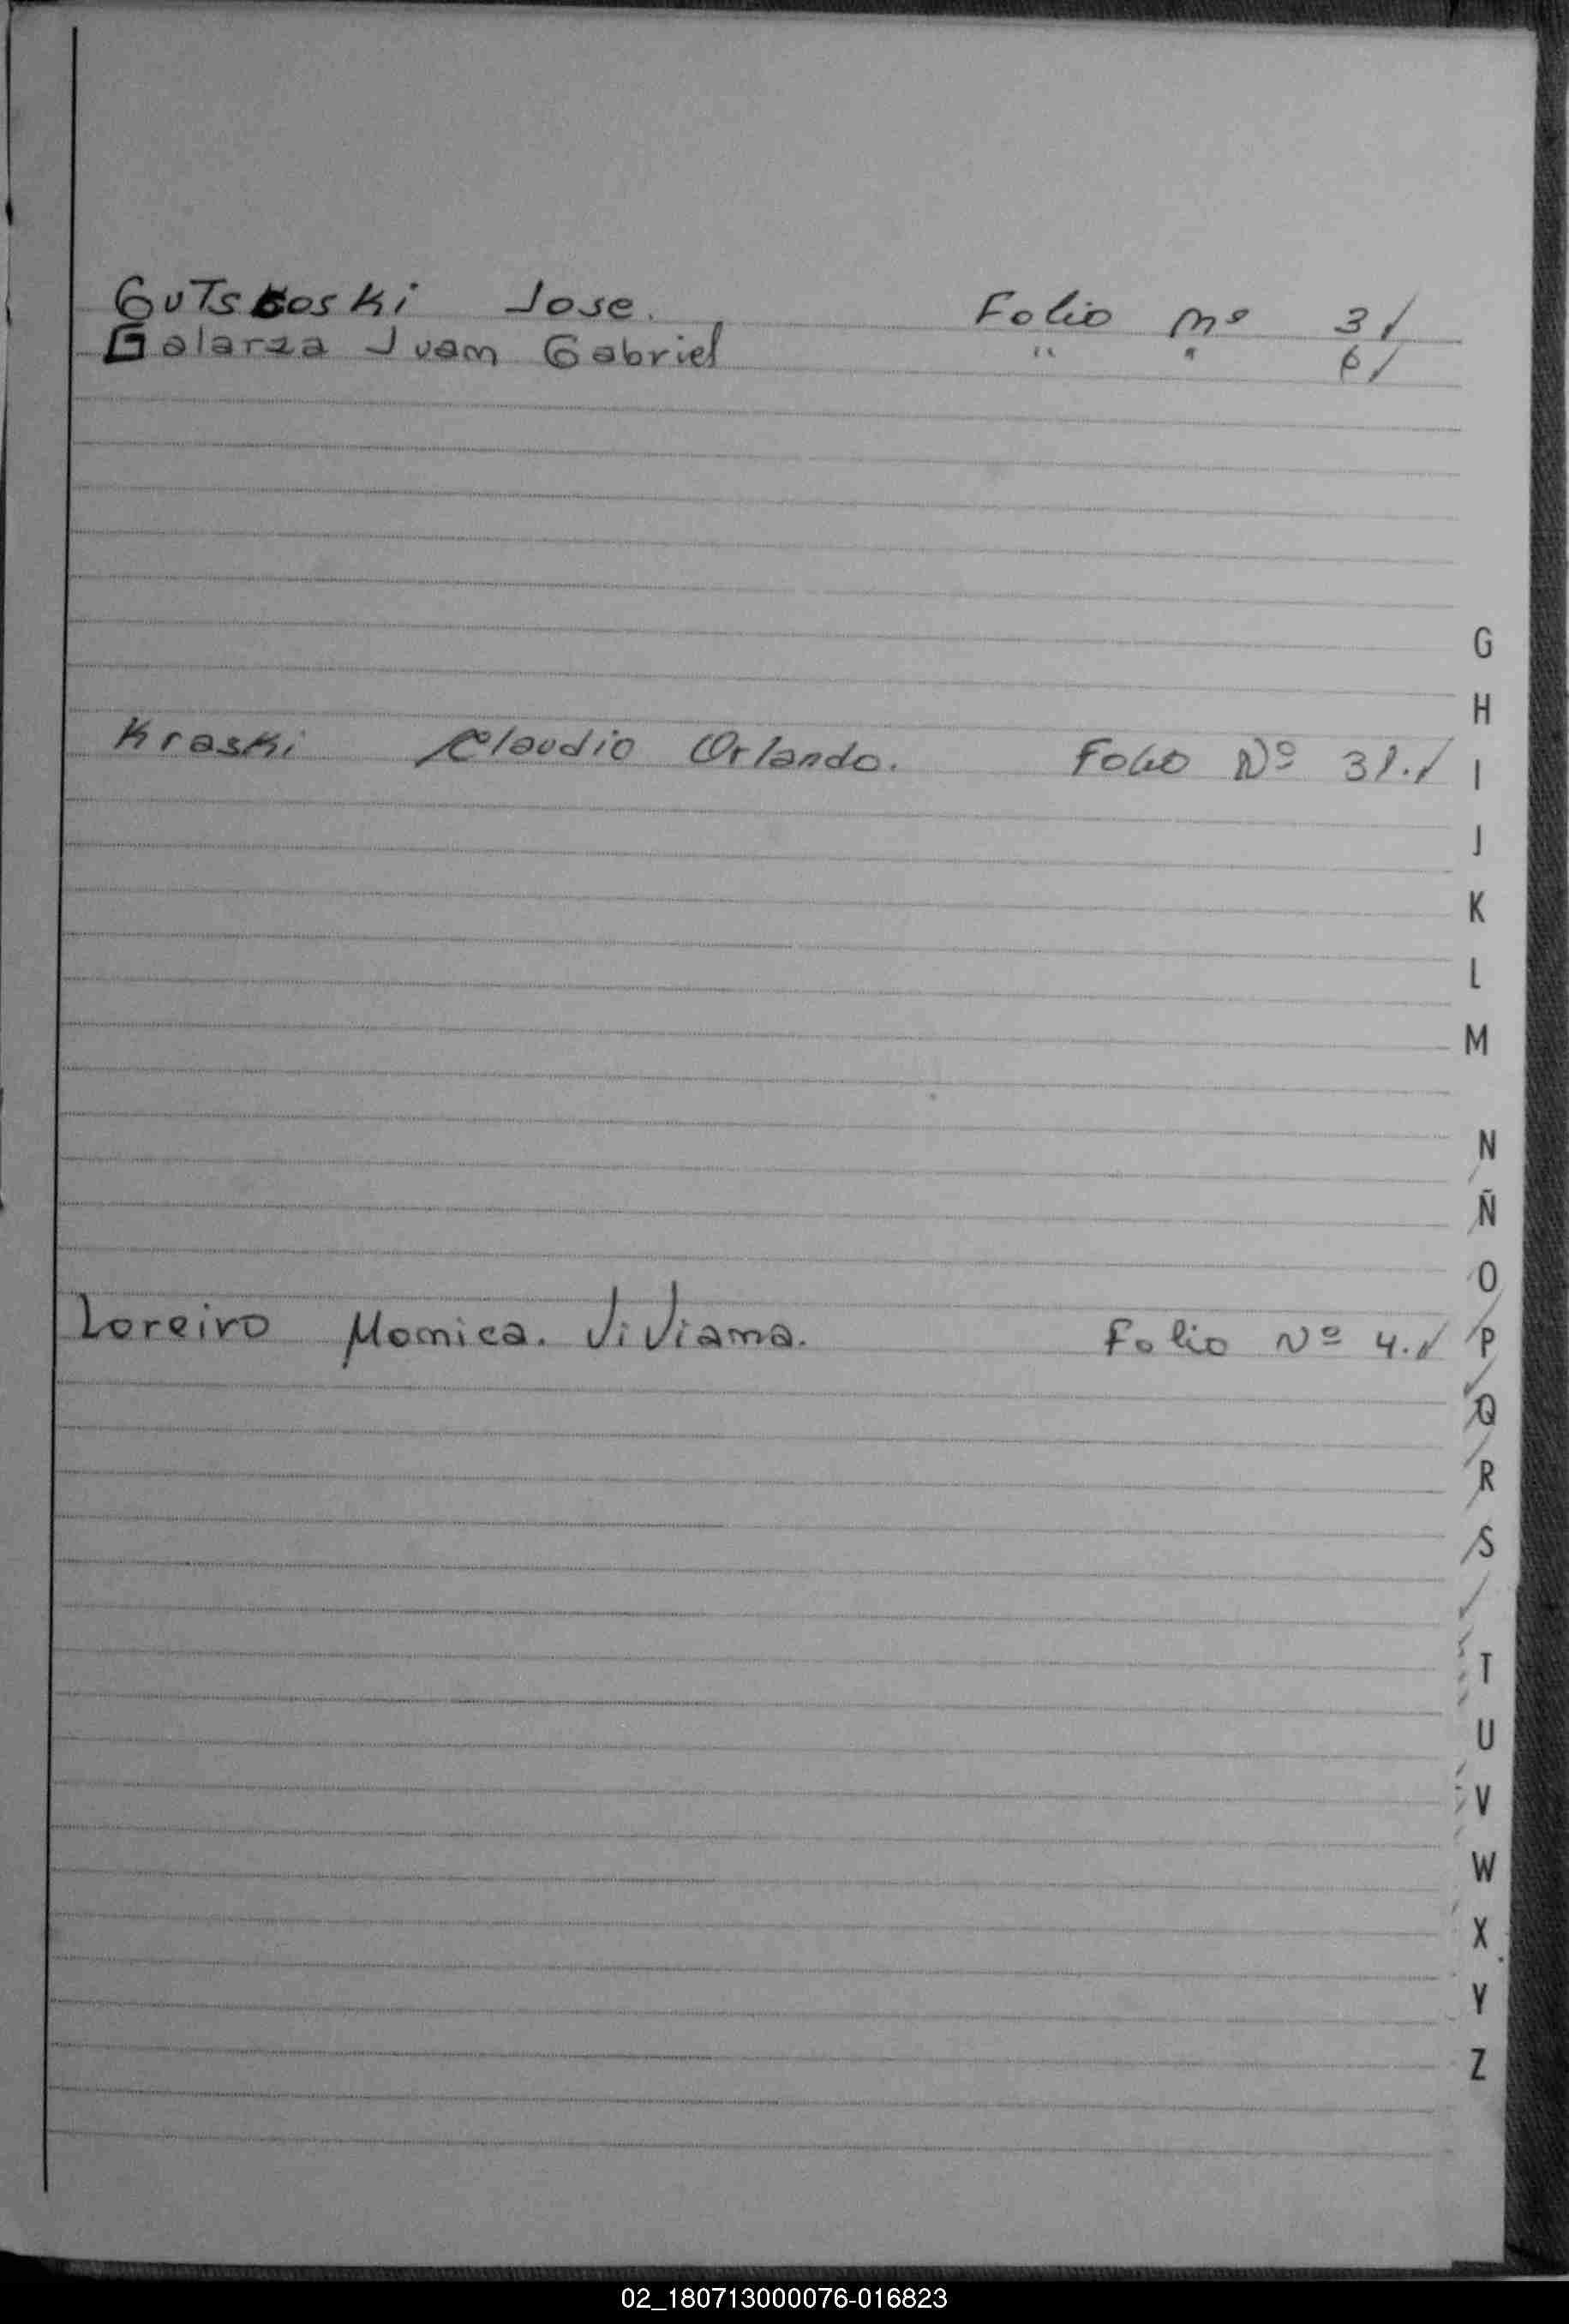 Gutskoski Jose. Folio Nº 3/
Galarza Juan Gabriel " " 6/
G
H
Kraski Claudio Orlando. Folio Nº 31./
I
J
K
L
M
N
Ñ
O
Loreiro Monica. Viviana. Folio Nº 4./
P
Q
R
S
T
U
V
W
X
Y
Z
02_180713000076-016823